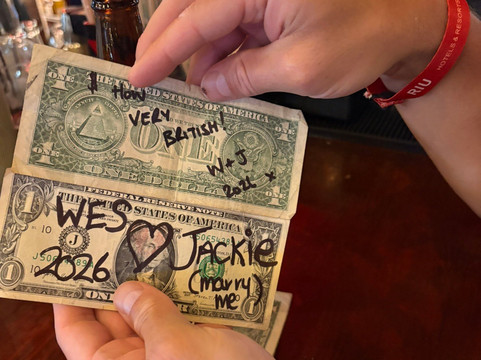 THE UNITED STATES OF AMERICA
$ HOW
VERY
BRITISH!
W + J
2026 x
ONE
ONE DOLLAR
FEDERAL RESERVE NOTE
THE UNITED STATES OF AMERICA
WES ♡ JACKIE
2026
(MARRY
ME)
J
10
1
RIU
HOTELS & RESORTS